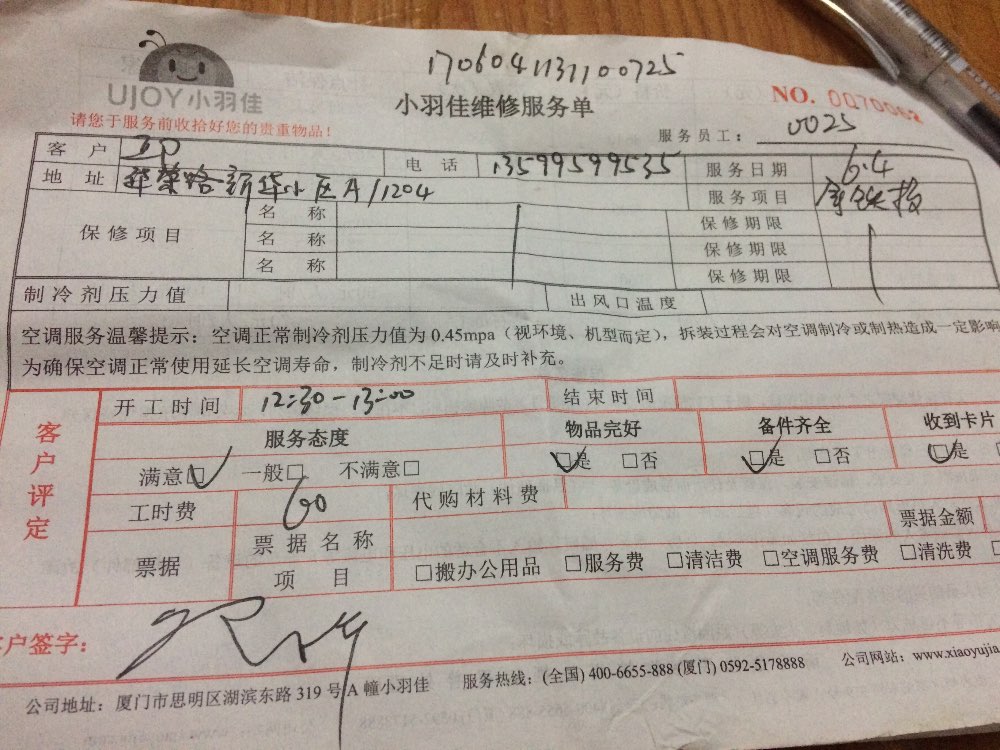 1706041131100725
UJOY小羽佳
小羽佳维修服务单
NO. 0070062
请您于服务前收拾好您的贵重物品!
服务员工: 0025
客户 电话 13599599535 服务日期 6.4
地址 新华小区A/1204 服务项目
保修项目 名称 保修期限
名称 保修期限
名称 保修期限
制冷剂压力值 出风口温度
空调服务温馨提示:空调正常制冷剂压力值为0.45mpa(视环境、机型而定),拆装过程会对空调制冷或制热造成一定影响
为确保空调正常使用延长空调寿命,制冷剂不足时请及时补充。
客户评定
开工时间 12:30-13:00 结束时间
服务态度 物品完好 备件齐全 收到卡片
满意□ 一般□ 不满意□ □是 □否 □是 □否 □是
工时费 60 代购材料费
票据 票据名称 票据金额
项目 □搬办公用品 □服务费 □清洁费 □空调服务费 □清洗费
客户签字:
公司地址:厦门市思明区湖滨东路319号A幢小羽佳 服务热线:(全国) 400-6655-888 (厦门) 0592-5178888 公司网站:www.xiaoyujia